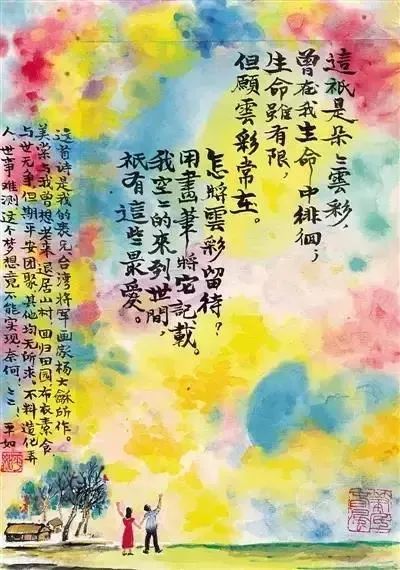 這祇是朵〻雲彩，
曾在我生命中徘徊；
生命雖有限，
但願雲彩常在。
怎將雲彩留待？
用畫筆將它記載。
我空〻的來到世間，
祇有這些最愛。
這首诗是我的表兄台湾將军画家杨大稣所作。
美棠与我曾想老来退居山村，回归田園，布衣素食
与世无争但期平安团聚，其他均无所求。不料造化弄
人世事难测这个梦想竟不能实现奈何！〻〻！平如